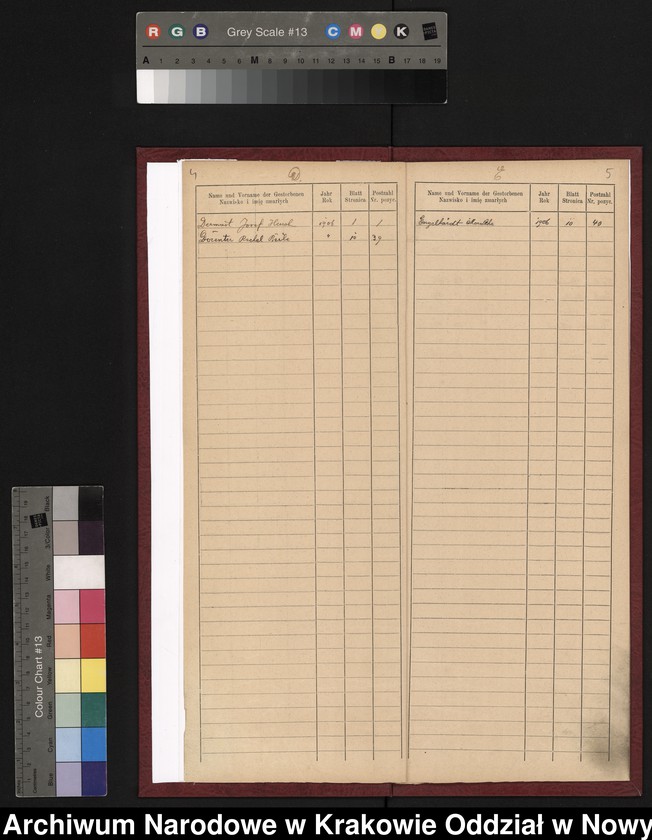 R G B Grey Scale #13 C M Y K
A 1 2 3 4 5 6 M 8 9 10 11 12 13 14 15 B 17 18 19
4
Name und Vorname der Gestorbenen Jahr Blatt Postzahl
Nazwisko i imię zmarłych Rok Stronica Nr. pozyc.
Josef 1906 1 1
" 10 39
5
Name und Vorname der Gestorbenen Jahr Blatt Postzahl
Nazwisko i imię zmarłych Rok Stronica Nr. pozyc.
Engelhardt 1906 10 40
Colour Chart #13
Black
3/Color
White
Magenta
Red
Yellow
Green
Cyan
Blue
Archiwum Narodowe w Krakowie Oddział w Nowy